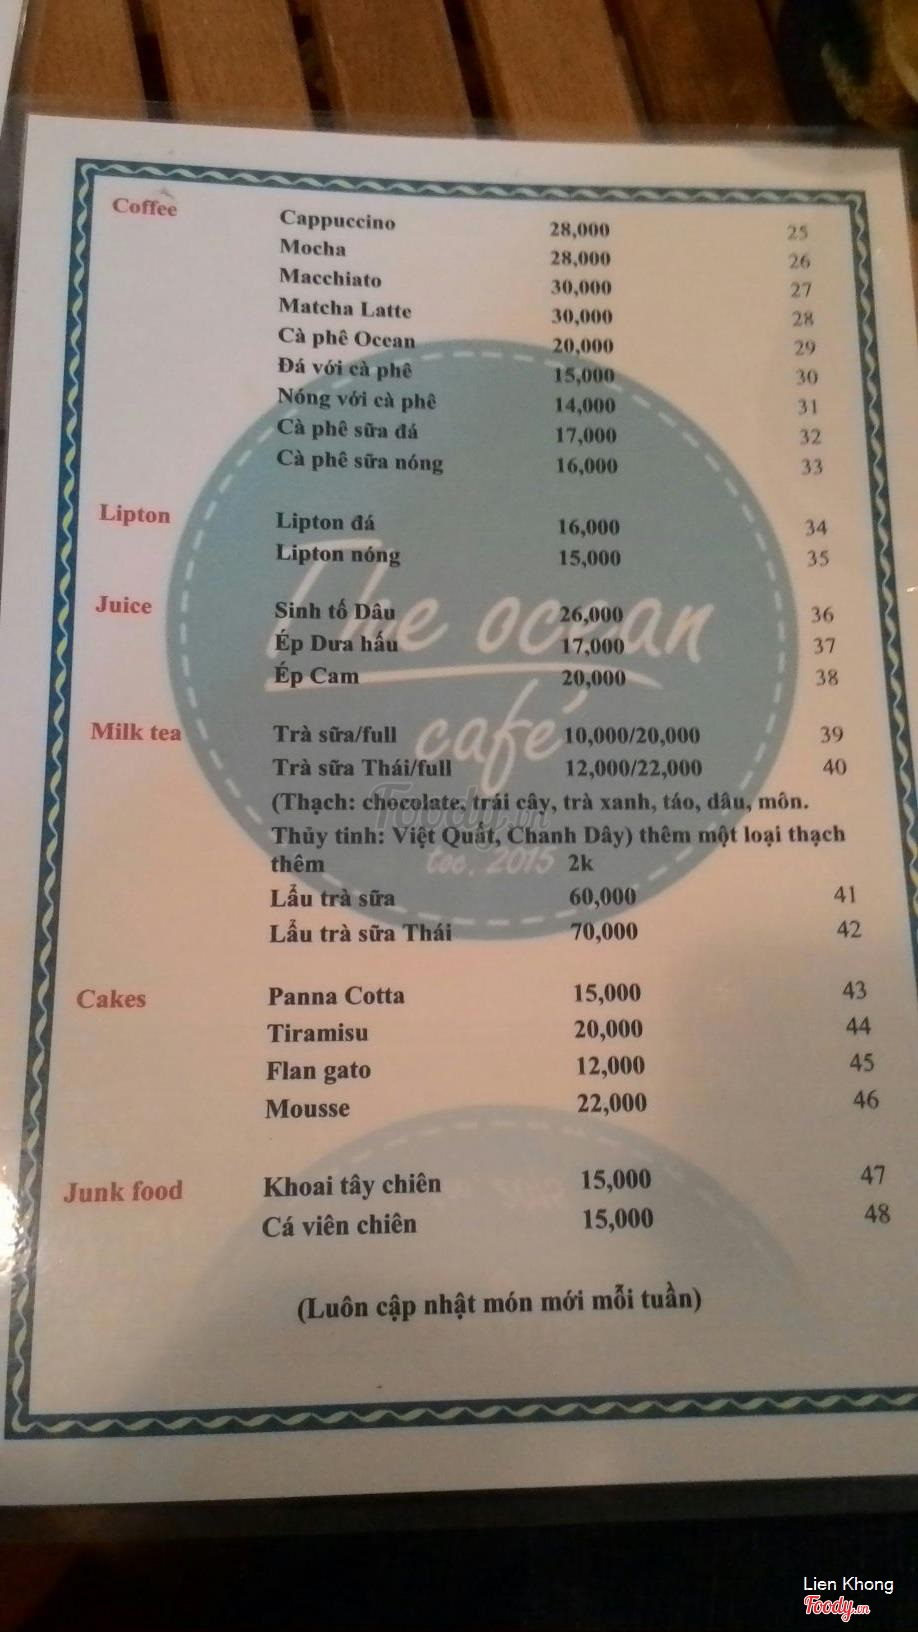 Coffee
Cappuccino 28,000 25
Mocha 28,000 26
Macchiato 30,000 27
Matcha Latte 30,000 28
Cà phê Ocean 20,000 29
Đá với cà phê 15,000 30
Nóng với cà phê 14,000 31
Cà phê sữa đá 17,000 32
Cà phê sữa nóng 16,000 33
Lipton
Lipton đá 16,000 34
Lipton nóng 15,000 35
Juice
Sinh tố Dâu 26,000 36
Ép Dưa hấu 17,000 37
Ép Cam 20,000 38
The ocean
café
Milk tea
Trà sữa/full 10,000/20,000 39
Trà sữa Thái/full 12,000/22,000 40
(Thạch: chocolate, trái cây, trà xanh, táo, dâu, môn.
Foody.vn
Thủy tinh: Việt Quất, Chanh Dây) thêm một loại thạch
thêm 2k
tec. 2015
Lẩu trà sữa 60,000 41
Lẩu trà sữa Thái 70,000 42
Cakes
Panna Cotta 15,000 43
Tiramisu 20,000 44
Flan gato 12,000 45
Mousse 22,000 46
Junk food
Khoai tây chiên 15,000 47
Cá viên chiên 15,000 48
(Luôn cập nhật món mới mỗi tuần)
Lien Khong
Foody.vn